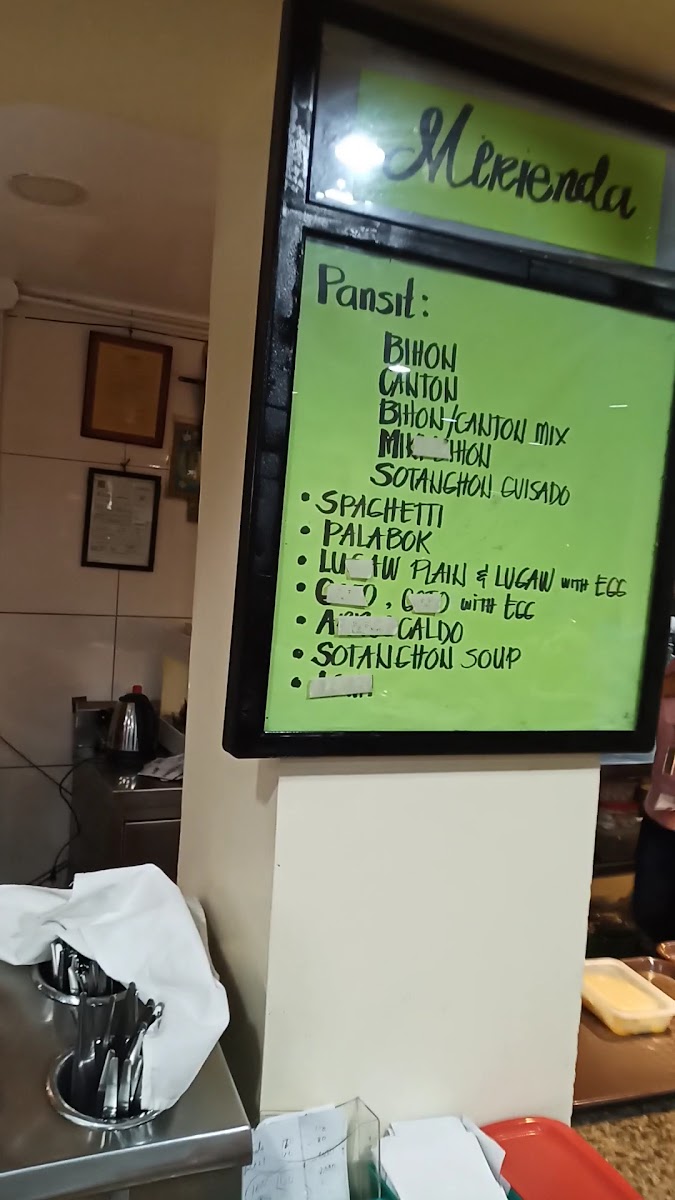 Merienda
Pansit:
BIHON
CANTON
BIHON/CANTON MIX
SOTANGHON GUISADO
• SPAGHETTI
• PALABOK
PLAIN & LUGAW WITH EGG
WITH EGG
• SOTANGHON SOUP